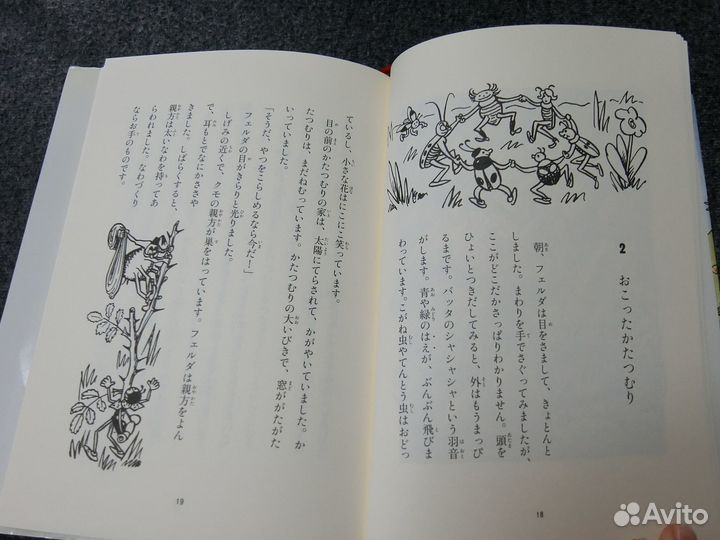 2
おこったかたつむり
朝、フェルダは目をさまして、きょとんと
しました。まわりを手でさぐってみましたが、
ここがどこだかさっぱりわかりません。頭を
ひょいとつきだしてみると、外はもうまっぴ
るまです。バッタのシャシャシャという羽音
がします。青や緑のはえが、ぶんぶん飛びま
わっています。こがね虫やてんとう虫はおどっ
18
ているし、小さな花はにこにこ笑っています。
目の前のかたつむりの家は、太陽にてらされて、かがやいていました。か
たつむりは、まだねむっています。かたつむりの大いびきで、窓ががたがた
いっていました。
「そうだ、やつをこらしめるなら今だ！」
フェルダの目がきらりと光りました。
しげみの近くで、クモの親方が巣をはっています。フェルダは親方をよん
で、耳もとでなにかささや
きました。しばらくすると、
親方は太いなわを持ってあ
らわれました。なわづくり
ならお手のものです。
19
Avito